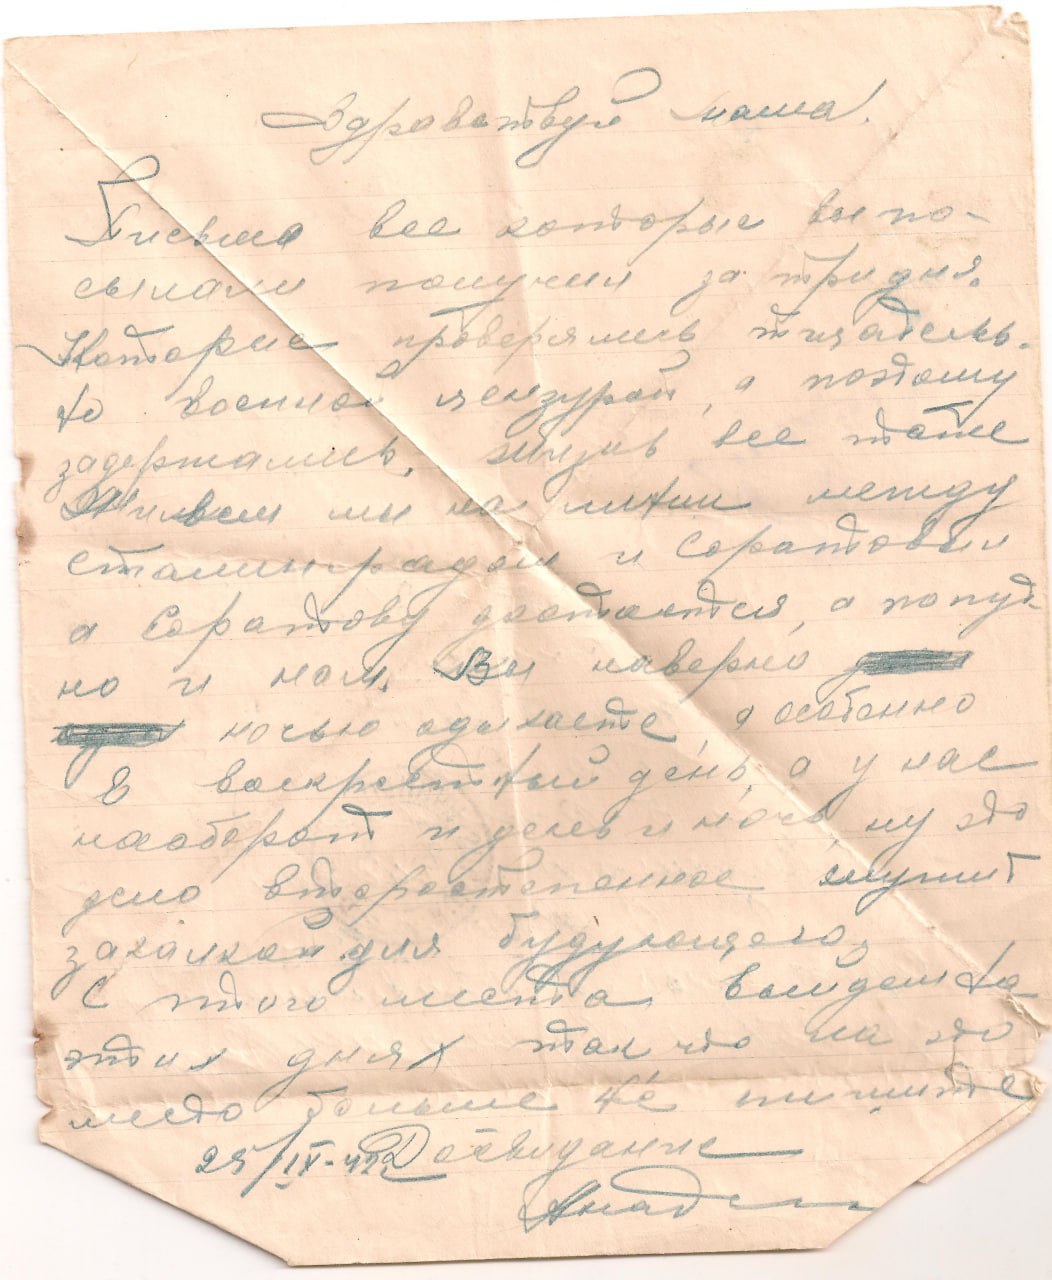 Здравствуй мама!
Письма все которые вы по-
сылали получил за три дня.
Которые проверялись тщатель-
но военной цензурой, а поэтому
задержались, жизнь все таже
Живем мы на линии между
сталинградом и Саратовым
а Саратову достается, а попут-
но и нам. Вы наверно
ночью одыхаете, а особенно
в воскрестный день, а у нас
наоборот и день и ночь, ну это
дело второстепенное служит
закалкой для будующего,
С этого места выйдем на
этих днях так что на это
место больше не пишите
25/IX-42г. Досвидание